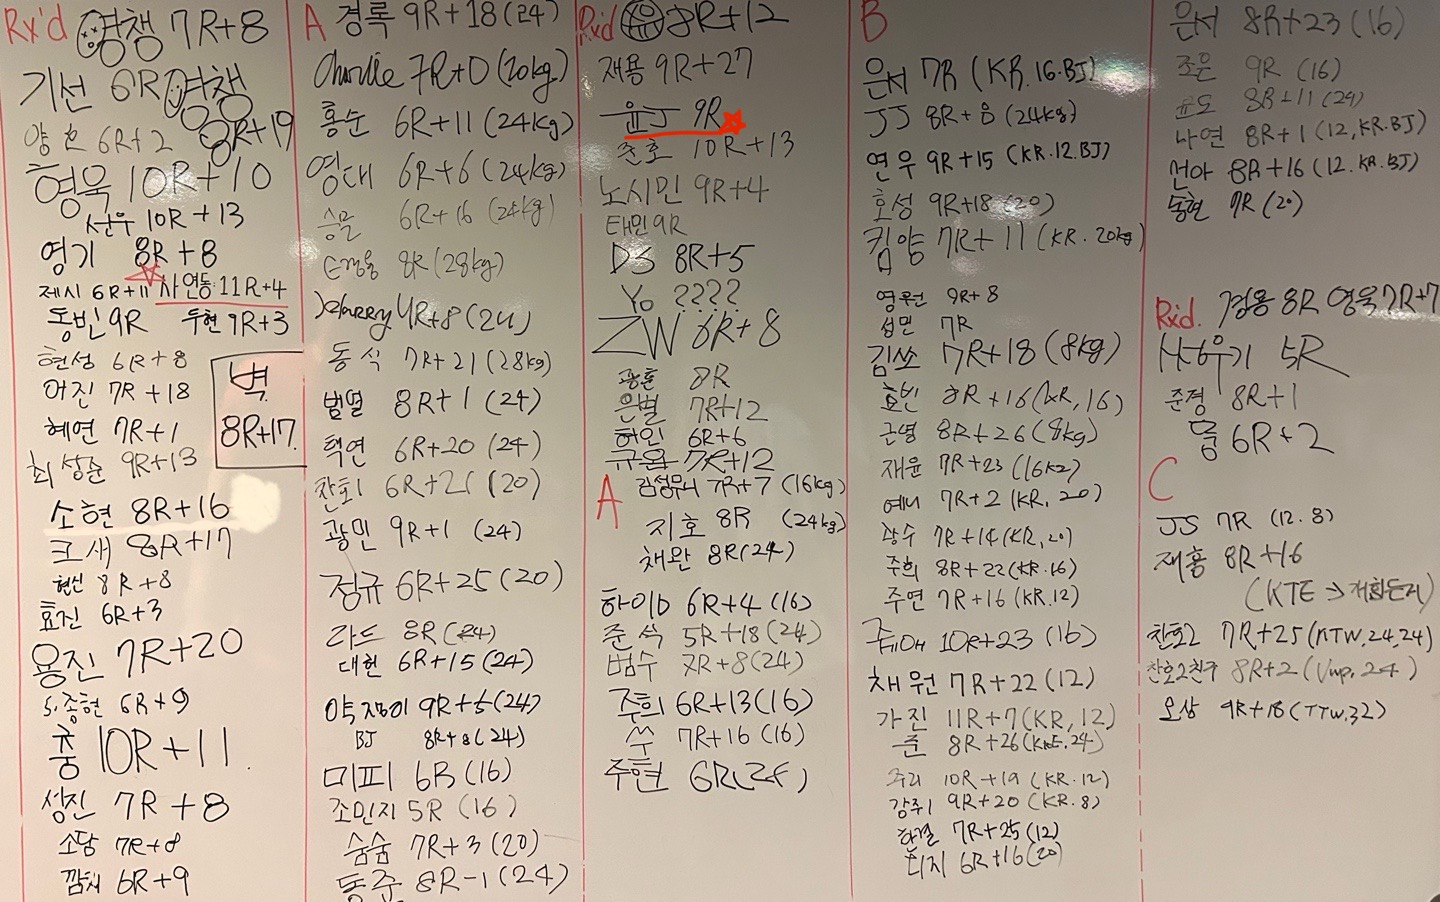 Rx'd 영챙 7R+8
기선 6R 영챙
8R+19
양호 6R+2
형욱 10R+10
선우 10R+13
영기 8R+8
제시 6R+11 사연동 11R+4
동빈 9R 두현 9R+3
현성 6R+8
어진 7R+18
벽.
8R+17
혜연 7R+1
최성준 9R+13
소현 8R+16
크새 8R+17
현신 8R+8
효진 6R+3
용진 7R+20
S.종현 6R+9
중 10R+11
성진 7R+8
소담 7R+8
깜시 6R+9
A 경록 9R+18(24)
Charlie 7R+0(20kg)
홍순 6R+11(24kg)
영대 6R+6(24kg)
승모 6R+16(24kg)
8R(28kg)
Harry 4R+8(24)
동식 7R+21(28kg)
벌열 8R+1(24)
택연 6R+20(24)
찬호1 6R+21(20)
광민 9R+1(24)
정규 6R+25(20)
라드 8R(24)
대현 6R+15(24)
약쟁이 9R+5(24)
BJ 8R+8(24)
미피 6R(16)
조민지 5R(16)
숨숨 7R+3(20)
동준 8R-1(24)
Rxd 8R+12
재용 9R+27
윤J 9R
준호 10R+13
노시민 9R+4
태민 9R
DS 8R+5
Yo ????
ZW 6R+8
광훈 8R
은별 7R+12
허인 6R+6
규원 7R+12
A 김성우니 7R+7(16kg)
지호 8R(24kg)
채완 8R(24)
하이b 6R+4(16)
준석 5R+18(24)
범수 7R+8(24)
주희 6R+13(16)
쑤 7R+16(16)
주현 6R(24)
B
은서 7R(KR.16.BJ)
JJ 8R+8(24kg)
연우 9R+15(KR.12.BJ)
호성 9R+18(20)
킴양 7R+11(KR.20kg)
영원 9R+8
성민 7R
김쏘 7R+18(8kg)
효빈 8R+16(KR,16)
근영 8R+26(8kg)
재윤 7R+23(16k2)
예니 7R+2(KR.20)
상수 7R+14(KR,20)
주희 8R+22(KR.16)
주연 7R+16(KR.12)
10R+23(16)
채원 7R+22(12)
가진 11R+7(KR,12)
준 8R+26(KRE.24)
주리 10R+19(KR.12)
강쥐1 9R+20(KR.8)
한결 7R+25(12)
디지 6R+16(20)
은서 8R+23(16)
조은 9R(16)
윤도 8R+11(24)
나연 8R+1(12,KR.BJ)
선아 8R+16(12.KR.BJ)
동현 7R(20)
Rx'd. 경용 8R 영욱 7R+7
5R
준경 8R+1
뭉 6R+2
C
JS 7R(12.8)
재홍 8R+16
(KTE → 저희둔지)
찬호2 7R+25(KTW,24,24)
찬호2친구 8R+2(Vup.24)
오상 9R+18(TTW.32)